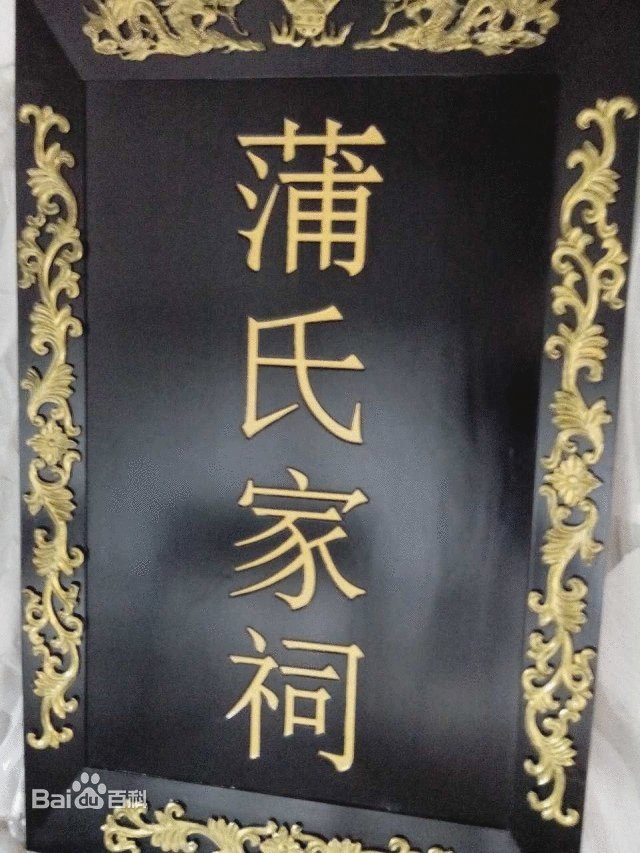 蒲氏家祠
Bai du 百科